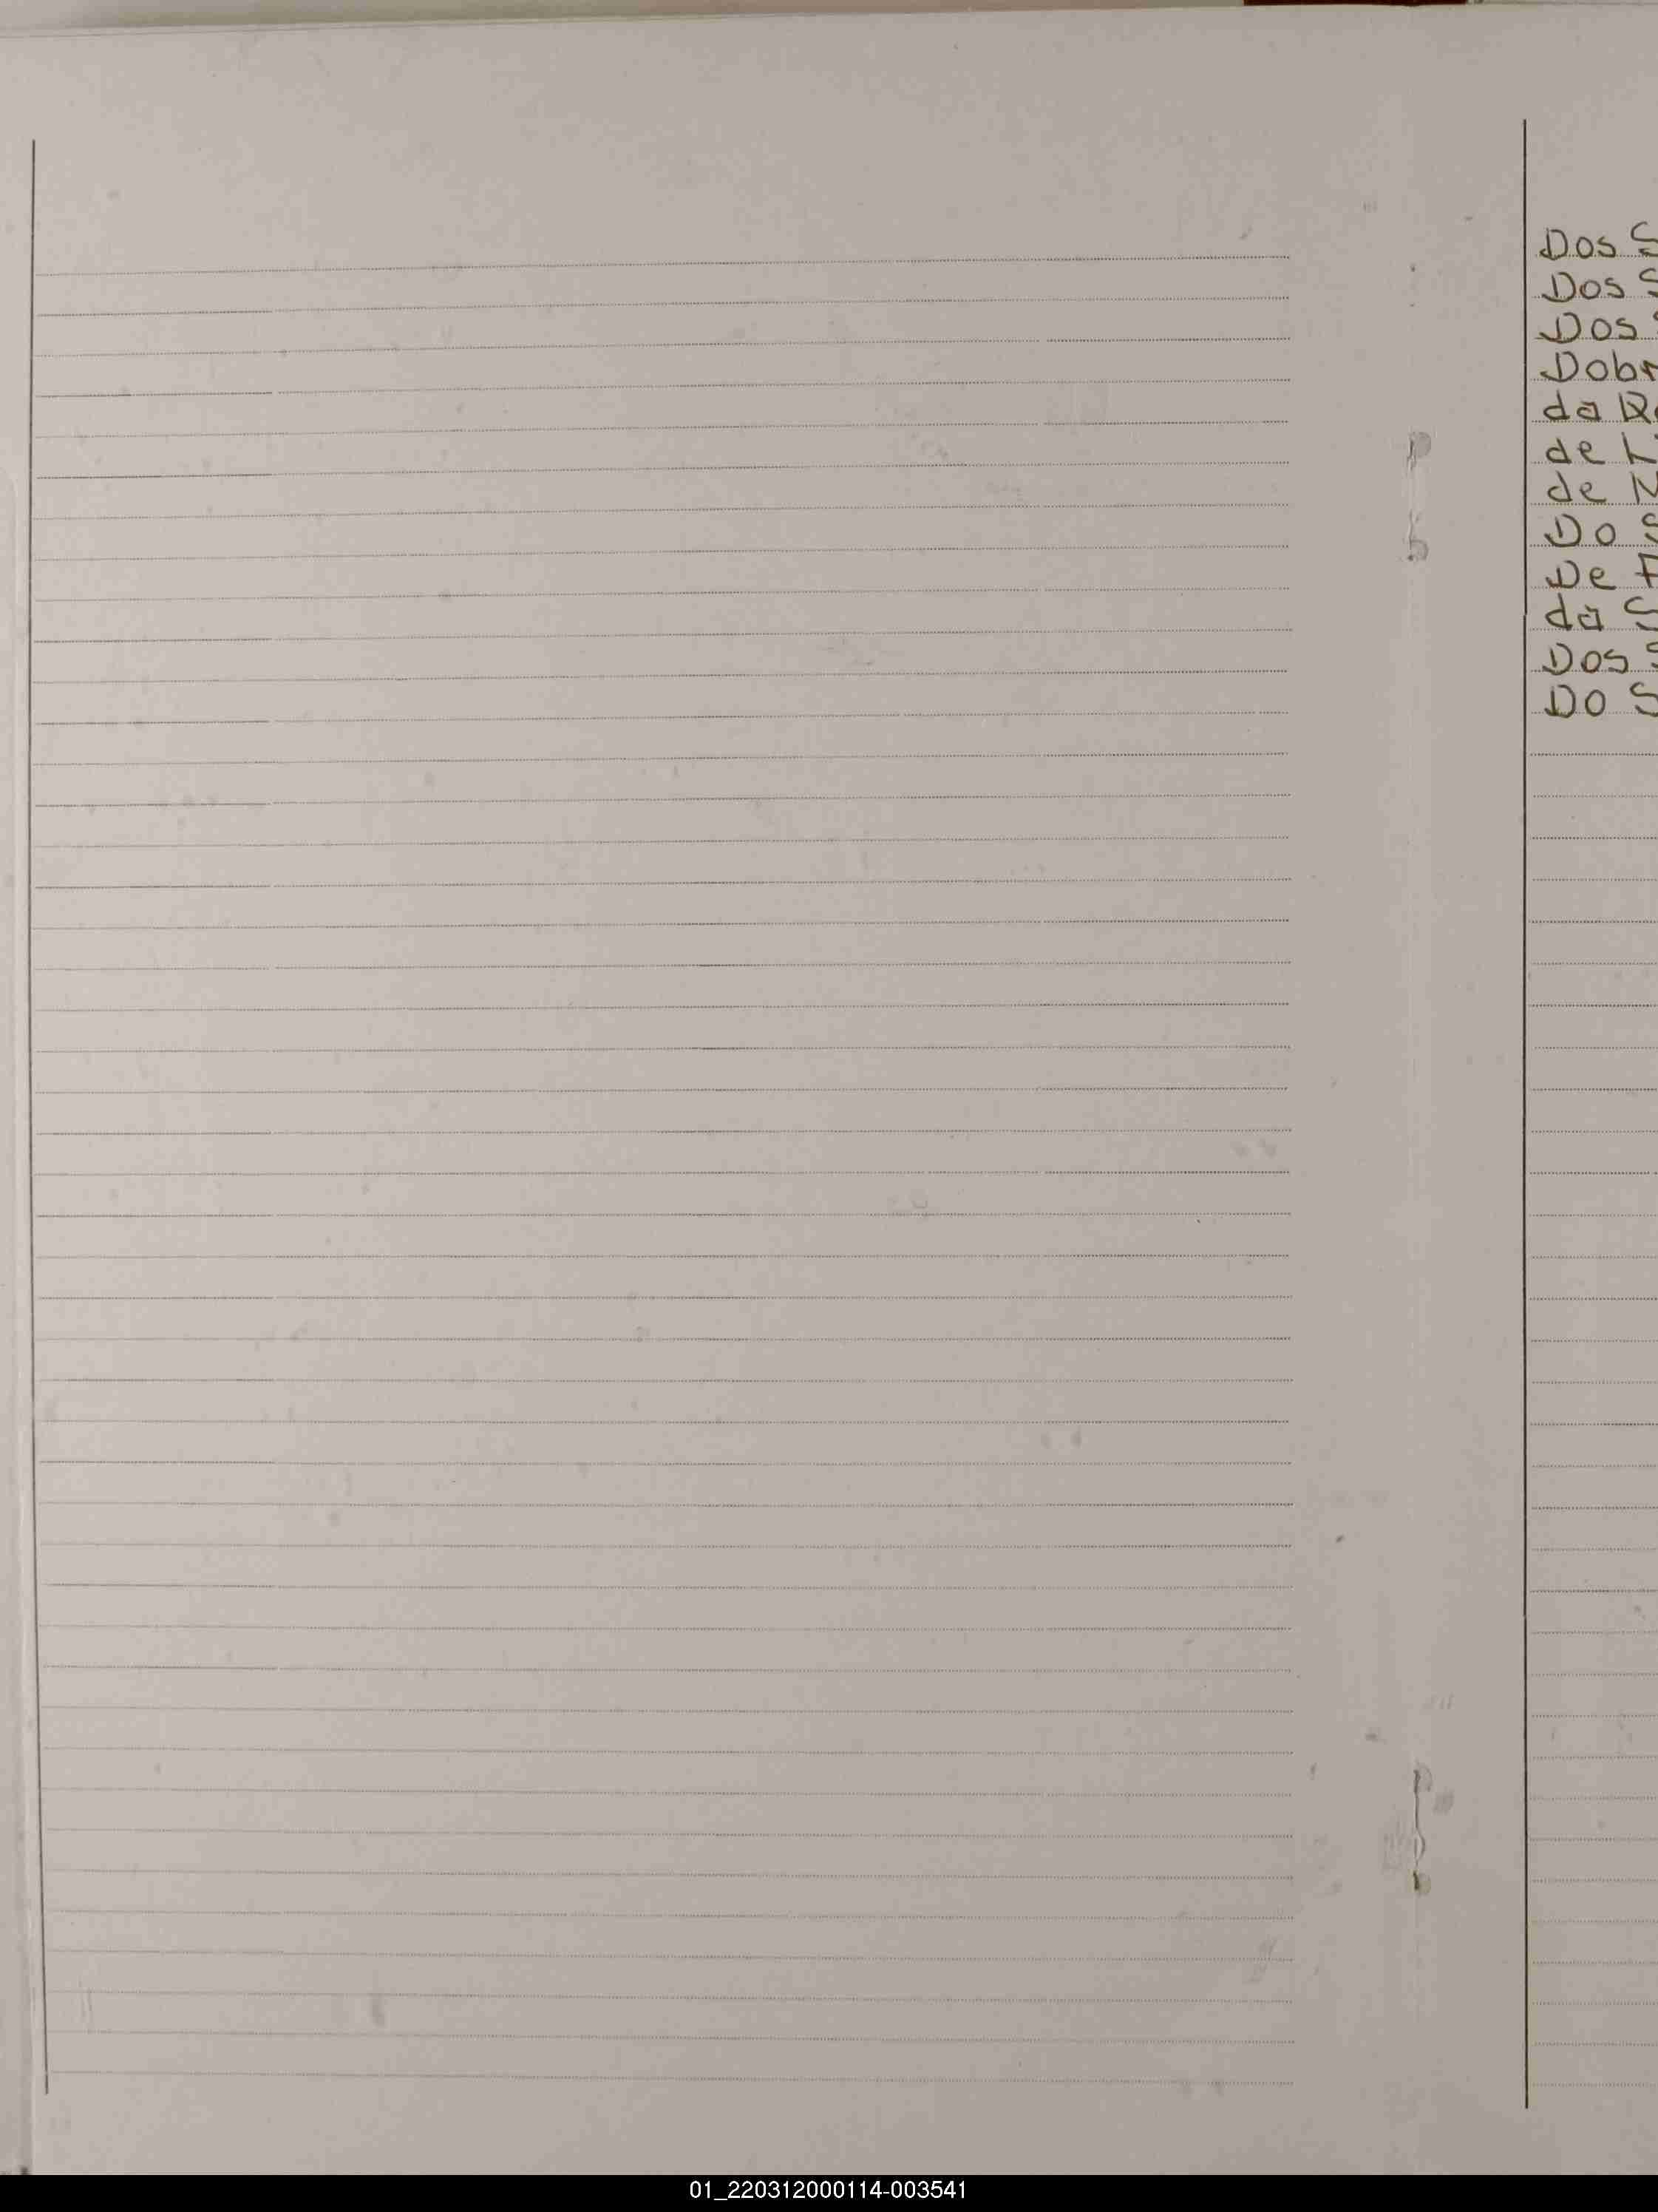 Dos S
Dos S
Dos
Dobr
da R
de L
de N
Do S
De F
da S
Dos S
Do S
01_220312000114-003541